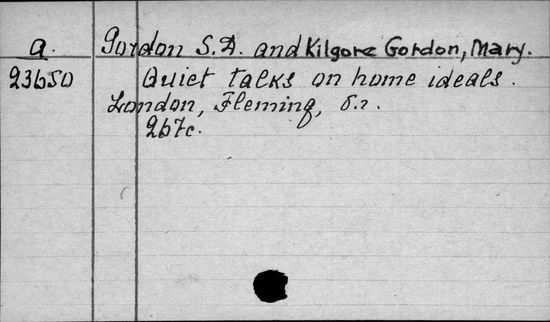 a. Gordon S.D. and Kilgore Gordon, Mary.
23650 Quiet talks on home ideals.
London, Fleming, s.a.
267c.